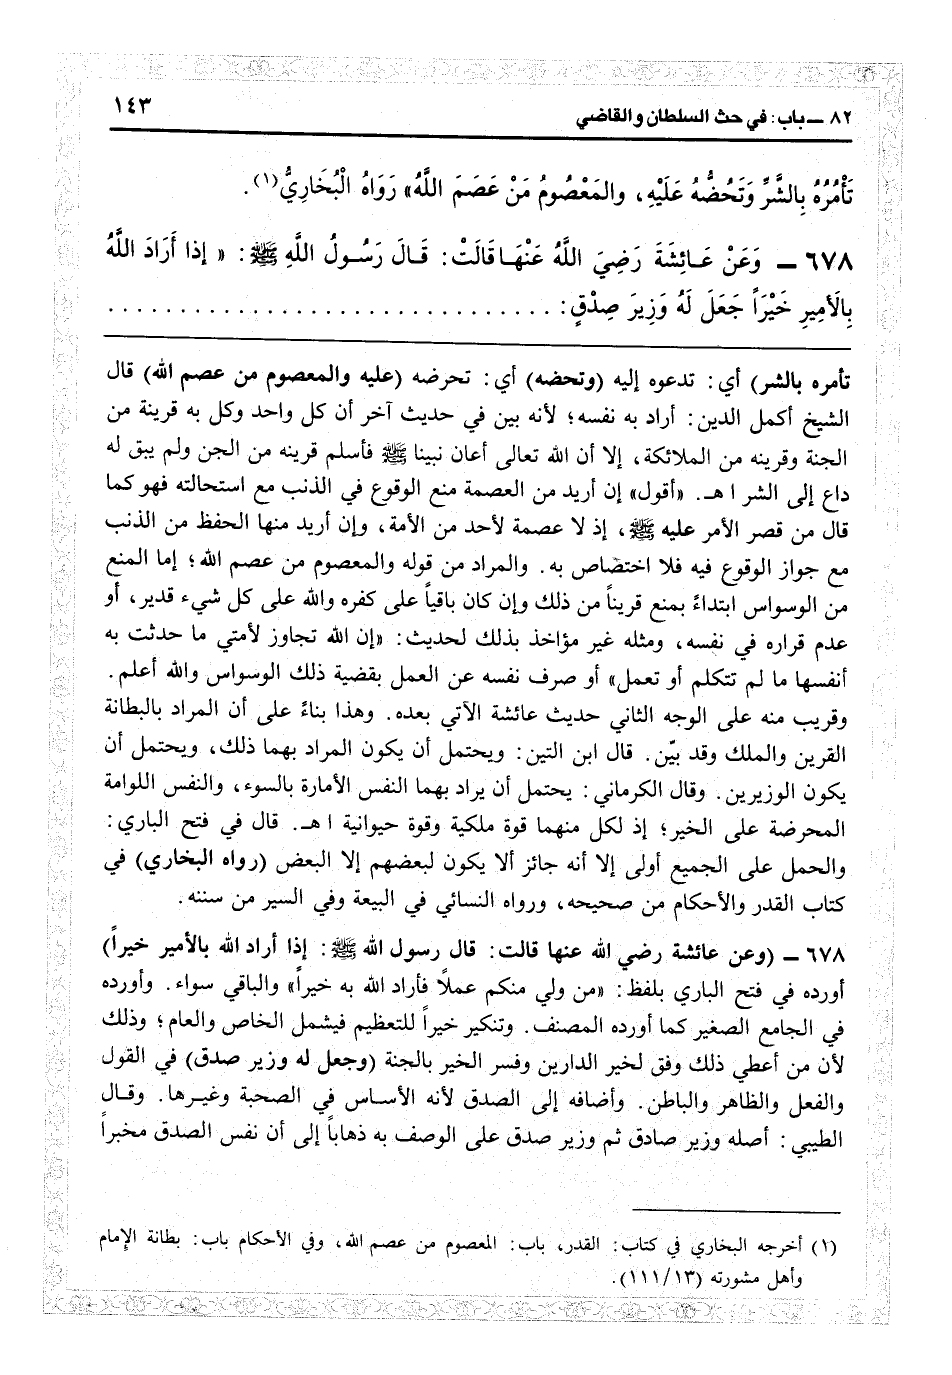 ٨٢ ــ باب: في حث السلطان والقاضي ١٤٣
تَأْمُرُهُ بِالشَّرِّ وَتَحُضُّهُ عَلَيْهِ، والمَعْصُومُ مَنْ عَصَمَ اللَّهُ» رَوَاهُ الْبُخَارِيُّ(١).
٦٧٨ ــ وَعَنْ عَـائِشَةَ رَضِيَ اللَّهُ عَنْهَـا قَالَتْ: قَـالَ رَسُـولُ اللَّهِ ﷺ: « إذا أَرَادَ اللَّهُ
بِالَأمِيرِ خَيْرَاً جَعَلَ لَهُ وَزِيرَ صِدْقٍ: . . . . . . . . . . . . . . . . . . . . . . . . . . . . . .
تأمره بالشر) أي: تدعوه إليه (وتحضه) أي: تحرضه (عليه والمعصوم من عصم الله) قال
الشيخ أكمل الدين: أراد به نفسه؛ لأنه بين في حديث آخر أن كل واحد وكل به قرينة من
الجنة وقرينه من الملائكة، إلا أن الله تعالى أعان نبينا ﷺ فأسلم قرينه من الجن ولم يبق له
داع إلى الشر ا هـ. «أقول» إن أريد من العصمة منع الوقوع في الذنب مع استحالته فهو كما
قال من قصر الأمر عليه ﷺ، إذ لا عصمة لأحد من الأمة، وإن أريد منها الحفظ من الذنب
مع جواز الوقوع فيه فلا اختصاص به. والمراد من قوله والمعصوم من عصم الله؛ إما المنع
من الوسواس ابتداءً بمنع قريناً من ذلك وإن كان باقياً على كفره والله على كل شيء قدير، أو
عدم قراره في نفسه، ومثله غير مؤاخذ بذلك لحديث: «إن الله تجاوز لأمتي ما حدثت به
أنفسها ما لم تتكلم أو تعمل» أو صرف نفسه عن العمل بقضية ذلك الوسواس والله أعلم.
وقريب منه على الوجه الثاني حديث عائشة الآتي بعده. وهذا بناءً على أن المراد بالبطانة
القرين والملك وقد بيّن. قال ابن التين: ويحتمل أن يكون المراد بهما ذلك، ويحتمل أن
يكون الوزيرين. وقال الكرماني: يحتمل أن يراد بهما النفس الأمارة بالسوء، والنفس اللوامة
المحرضة على الخير؛ إذ لكل منهما قوة ملكية وقوة حيوانية ا هـ. قال في فتح الباري:
والحمل على الجميع أولى إلا أنه جائز ألا يكون لبعضهم إلا البعض (رواه البخاري) في
كتاب القدر والأحكام من صحيحه، ورواه النسائي في البيعة وفي السير من سننه.
٦٧٨ ــ (وعن عائشة رضي الله عنها قالت: قال رسول الله ﷺ: إذا أراد الله بالأمير خيراً)
أورده في فتح الباري بلفظ: «من ولي منكم عملاً فأراد الله به خيراً» والباقي سواء. وأورده
في الجامع الصغير كما أورده المصنف. وتنكير خيراً للتعظيم فيشمل الخاص والعام؛ وذلك
لأن من أعطي ذلك وفق لخير الدارين وفسر الخير بالجنة (وجعل له وزير صدق) في القول
والفعل والظاهر والباطن. وأضافه إلى الصدق لأنه الأسـاس في الصحبة وغيـرها. وقـال
الطيبي: أصله وزير صادق ثم وزير صدق على الوصف به ذهاباً إلى أن نفس الصدق مخبراً
(١) أخرجه البخاري في كتاب: القدر، باب: المعصوم من عصم الله، وفي الأحكام باب: بطانة الإمام
وأهل مشورته (١١١/١٣).